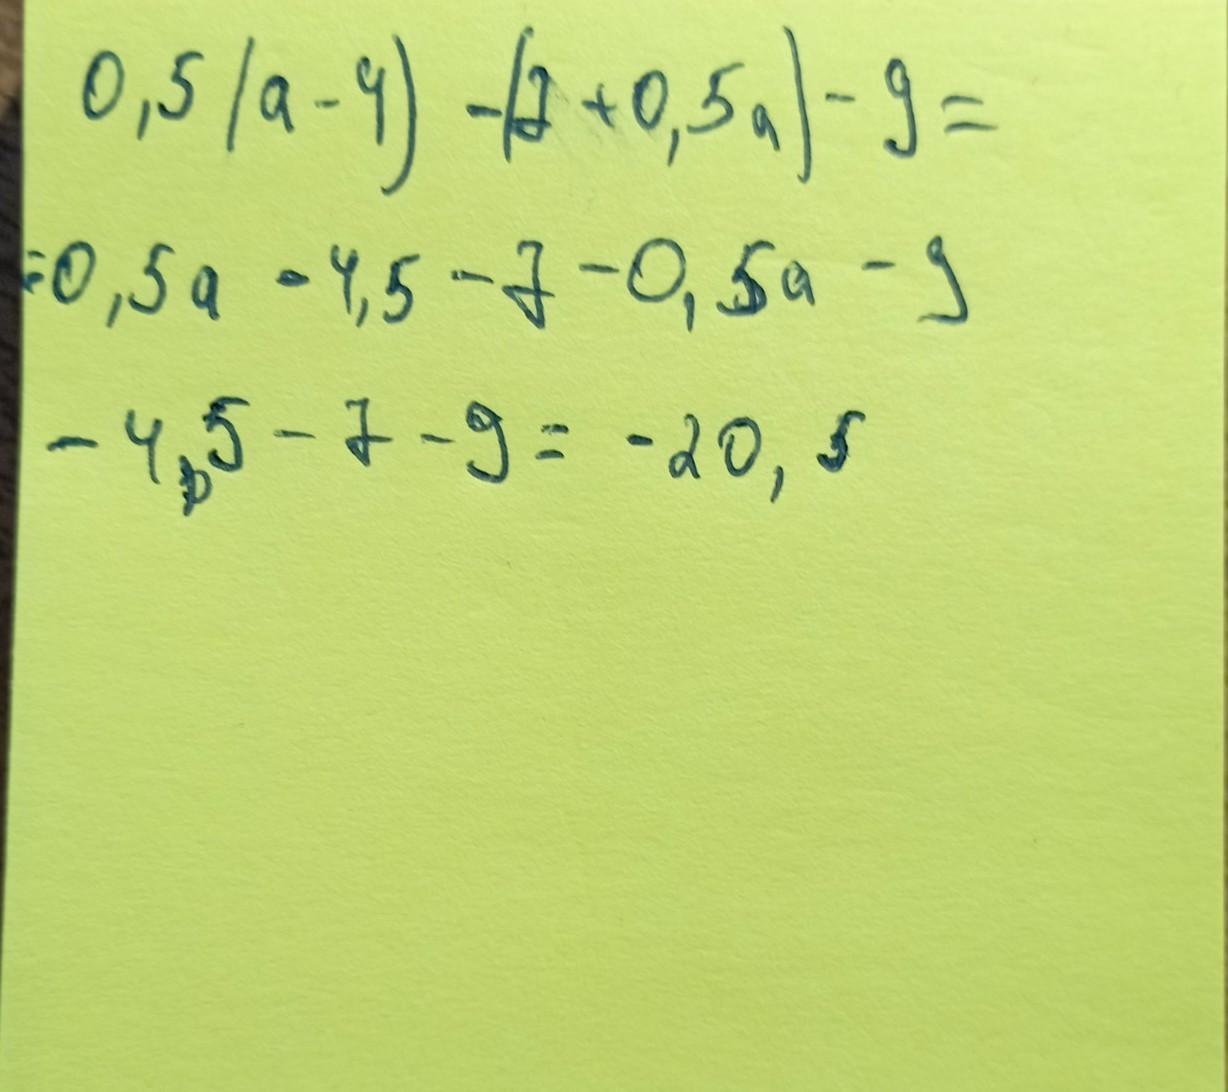 0,5(a-4) -(7+0,5a)-9=
=0,5a -4,5-7-0,5a-9
-4,5-7-9= -20,5